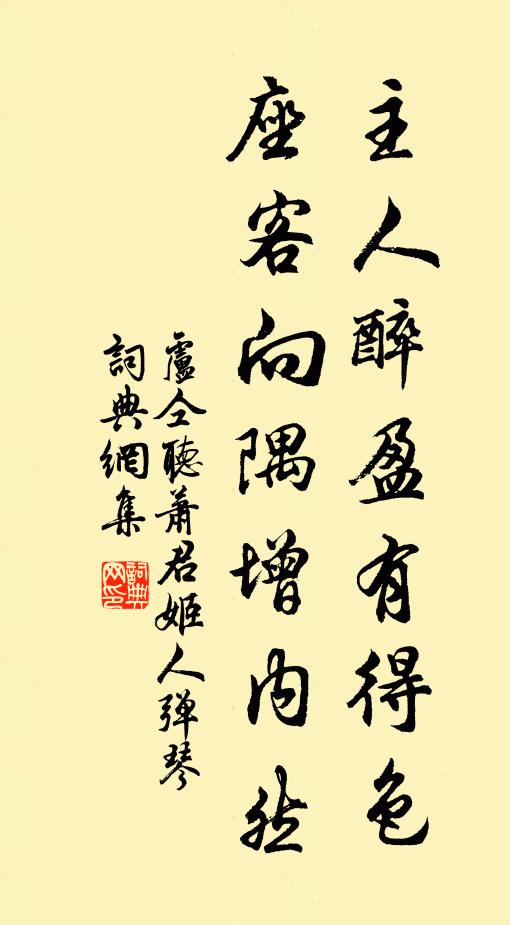 主人醉盈有得色
座客向隅增内然
盧仝聽蕭君姬人弹琴
詞典網集
詞典网印